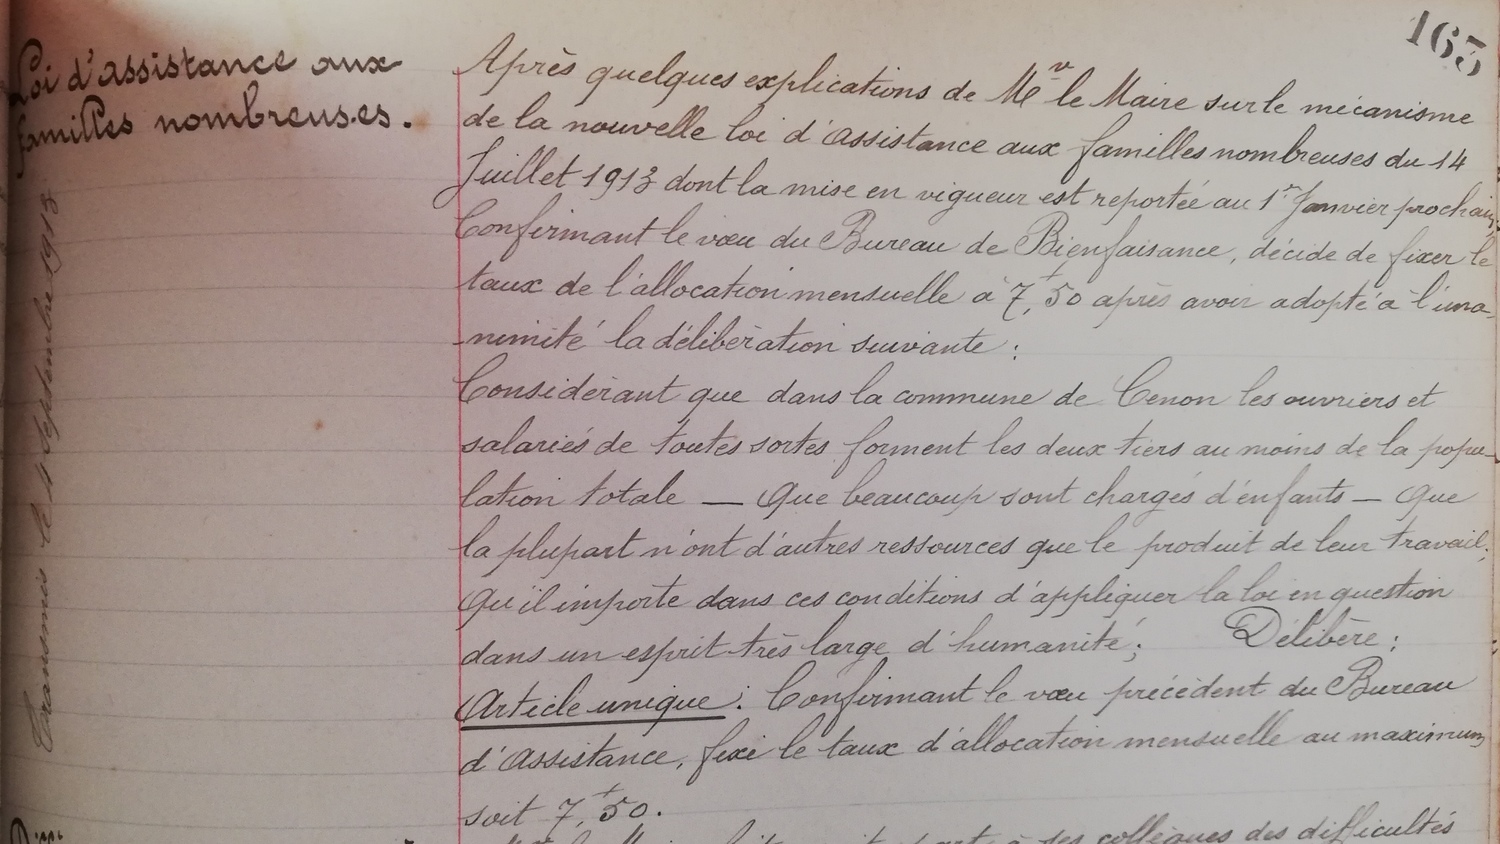 165
Loi d'assistance aux
familles nombreuses.
Transmis le 4 Septembre 1913
Après quelques explications de Mr le Maire sur le mécanisme
de la nouvelle loi d'assistance aux familles nombreuses du 14
Juillet 1913 dont la mise en vigueur est reportée au 1er Janvier prochain,
Confirmant le vœu du Bureau de Bienfaisance, décide de fixer le
taux de l'allocation mensuelle à 7f,50 après avoir adopté à l'una-
-nimité la délibération suivante :
Considérant que dans la commune de Cenon les ouvriers et
salariés de toutes sortes forment les deux tiers au moins de la popu-
lation totale — Que beaucoup sont chargés d'enfants — Que
la plupart n'ont d'autres ressources que le produit de leur travail;
Qu'il importe dans ces conditions d'appliquer la loi en question
dans un esprit très large d'humanité; Délibère :
Article unique : Confirmant le vœu précédent du Bureau
d'Assistance, fixe le taux d'allocation mensuelle au maximum
soit 7f,50.
le Maire fait part à ses collègues des difficultés